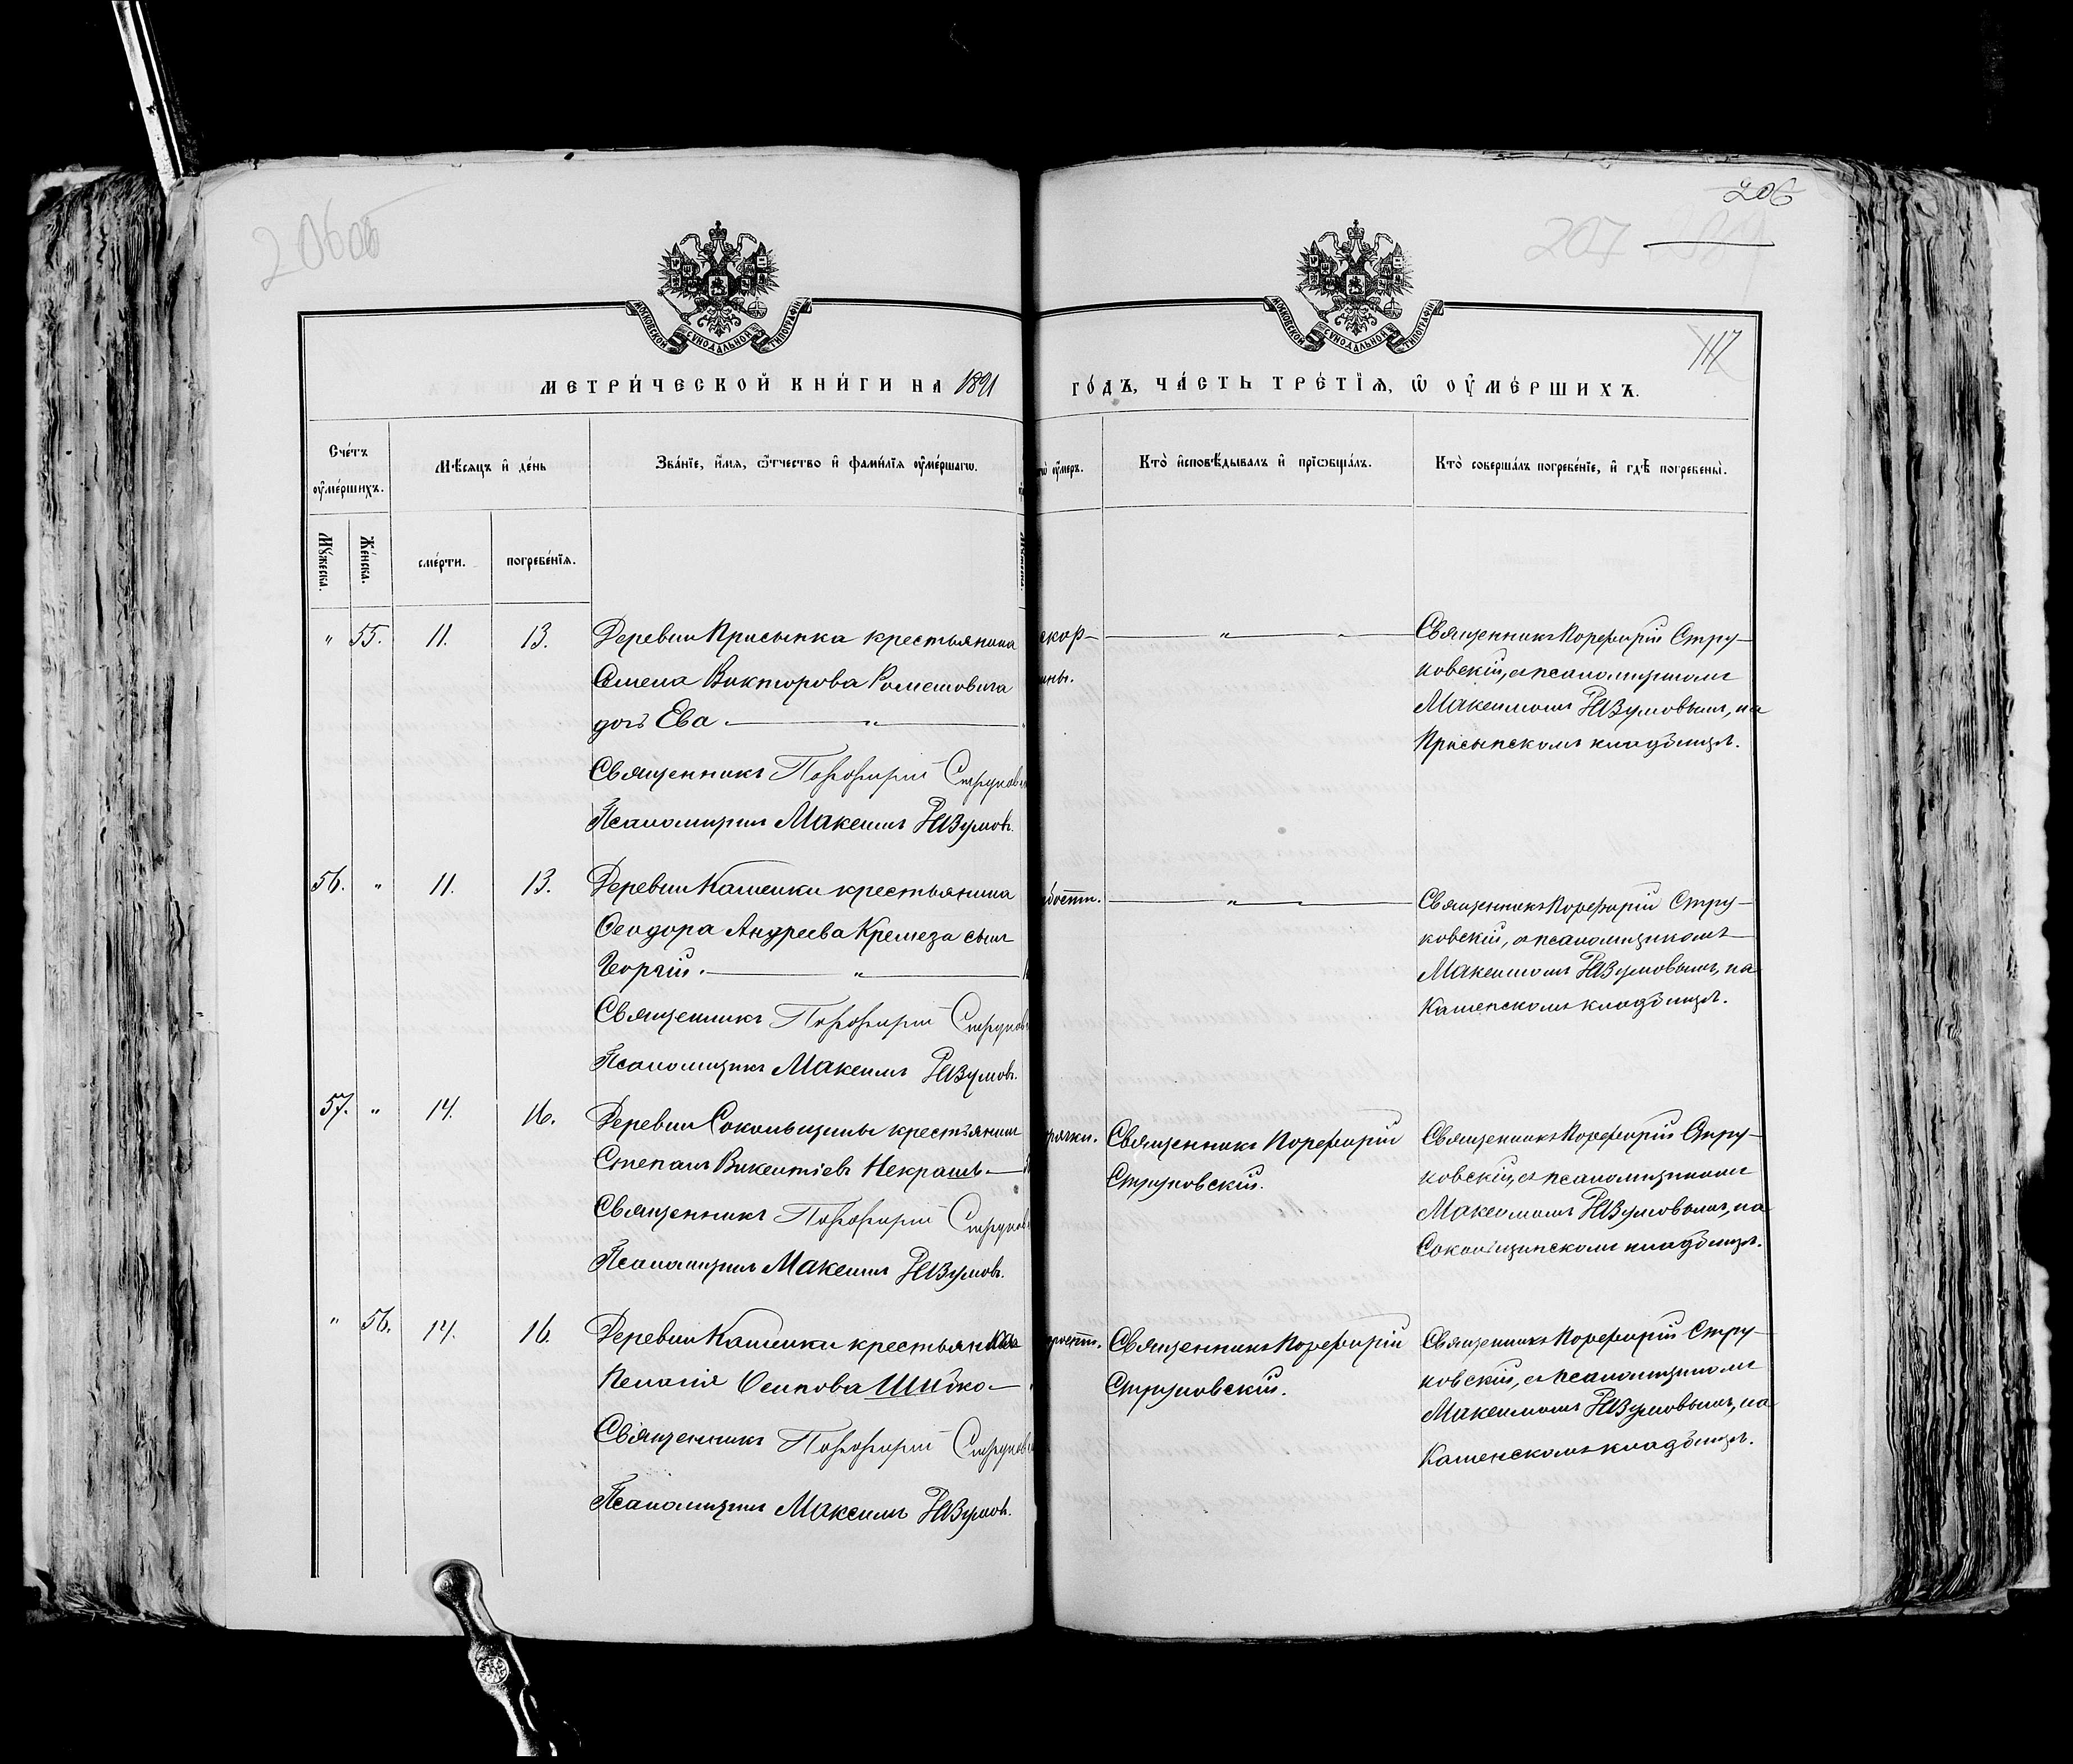 206об
206
207
117
МОСКОВСКОЙ СѴНОДАЛЬНОЙ ТИПОГРАФІИ
МОСКОВСКОЙ СѴНОДАЛЬНОЙ ТИПОГРАФІИ
МЕТРИ́ЧЕСКОЙ КНИ́ГИ НА 1891
ГО́ДЪ, ЧА́СТЬ ТРЕ́ТЇѦ, Ѡ҆ ОУ҆МЕ́РШИХЪ.
Сче́тъ
оу҆ме́ршихъ.
Мѣ́сяцъ и҆ де́нь
Зва́нїе, и҆́мѧ, ѻ҆́тчество и҆ фами́лїѧ оу҆ме́ршагѡ.
оу҆́меръ.
Кто̀ и҆сповѣ́дывалъ и҆ прїѡбща́лъ.
Кто̀ соверша́лъ погребе́нїе, и҆ гдѣ̀ погребены̀.
Мꙋ́жеска.
Же́нска.
сме́рти.
погребе́нїѧ.
„ 55. 11. 13. Деревни Присынка крестьянина
Семена Викторова Ромашовича
дочь Ева — „ —
Священникъ Порфирий Струковск
Псаломщикъ Максимъ Наумовъ.
скор-
ины.
— „ — „ —
Священникъ Порфирій Стру-
ковскій, съ псаломщикомъ
Максимомъ Наумовымъ, на
Присынскомъ кладбищѣ.
56. „ 11. 13. Деревни Каменки крестьянина
Ѳеодора Андреева Кремеза сынъ
Георгій. — „ —
Священникъ Порфирий Струков
Псаломщикъ Максимъ Наумовъ.
бости.
— „ —
Священникъ Порфирій Стру-
ковскій, съ псаломщикомъ
Максимомъ Наумовымъ, на
Каменскомъ кладбищѣ.
57. „ 14. 16. Деревни Сокольщины крестьянинъ
Степанъ Викентіевъ Некрашъ —
Священникъ Порфирий Струков
Псаломщикъ Максимъ Наумовъ.
рячки.
Священникъ Порфирій
Струковскій.
Священникъ Порфирій Стру-
ковскій, съ псаломщикомъ
Максимомъ Наумовымъ, на
Сокольщинскомъ кладбищѣ.
„ 56. 14. 16. Деревни Каменки крестьянка
Пелагія Осипова Шибко —
Священникъ Порфирий Струковс
Псаломщикъ Максимъ Наумовъ.
рости.
Священникъ Порфирій
Струковскій.
Священникъ Порфирій Стру-
ковскій, съ псаломщикомъ
Максимомъ Наумовымъ, на
Каменскомъ кладбищѣ.